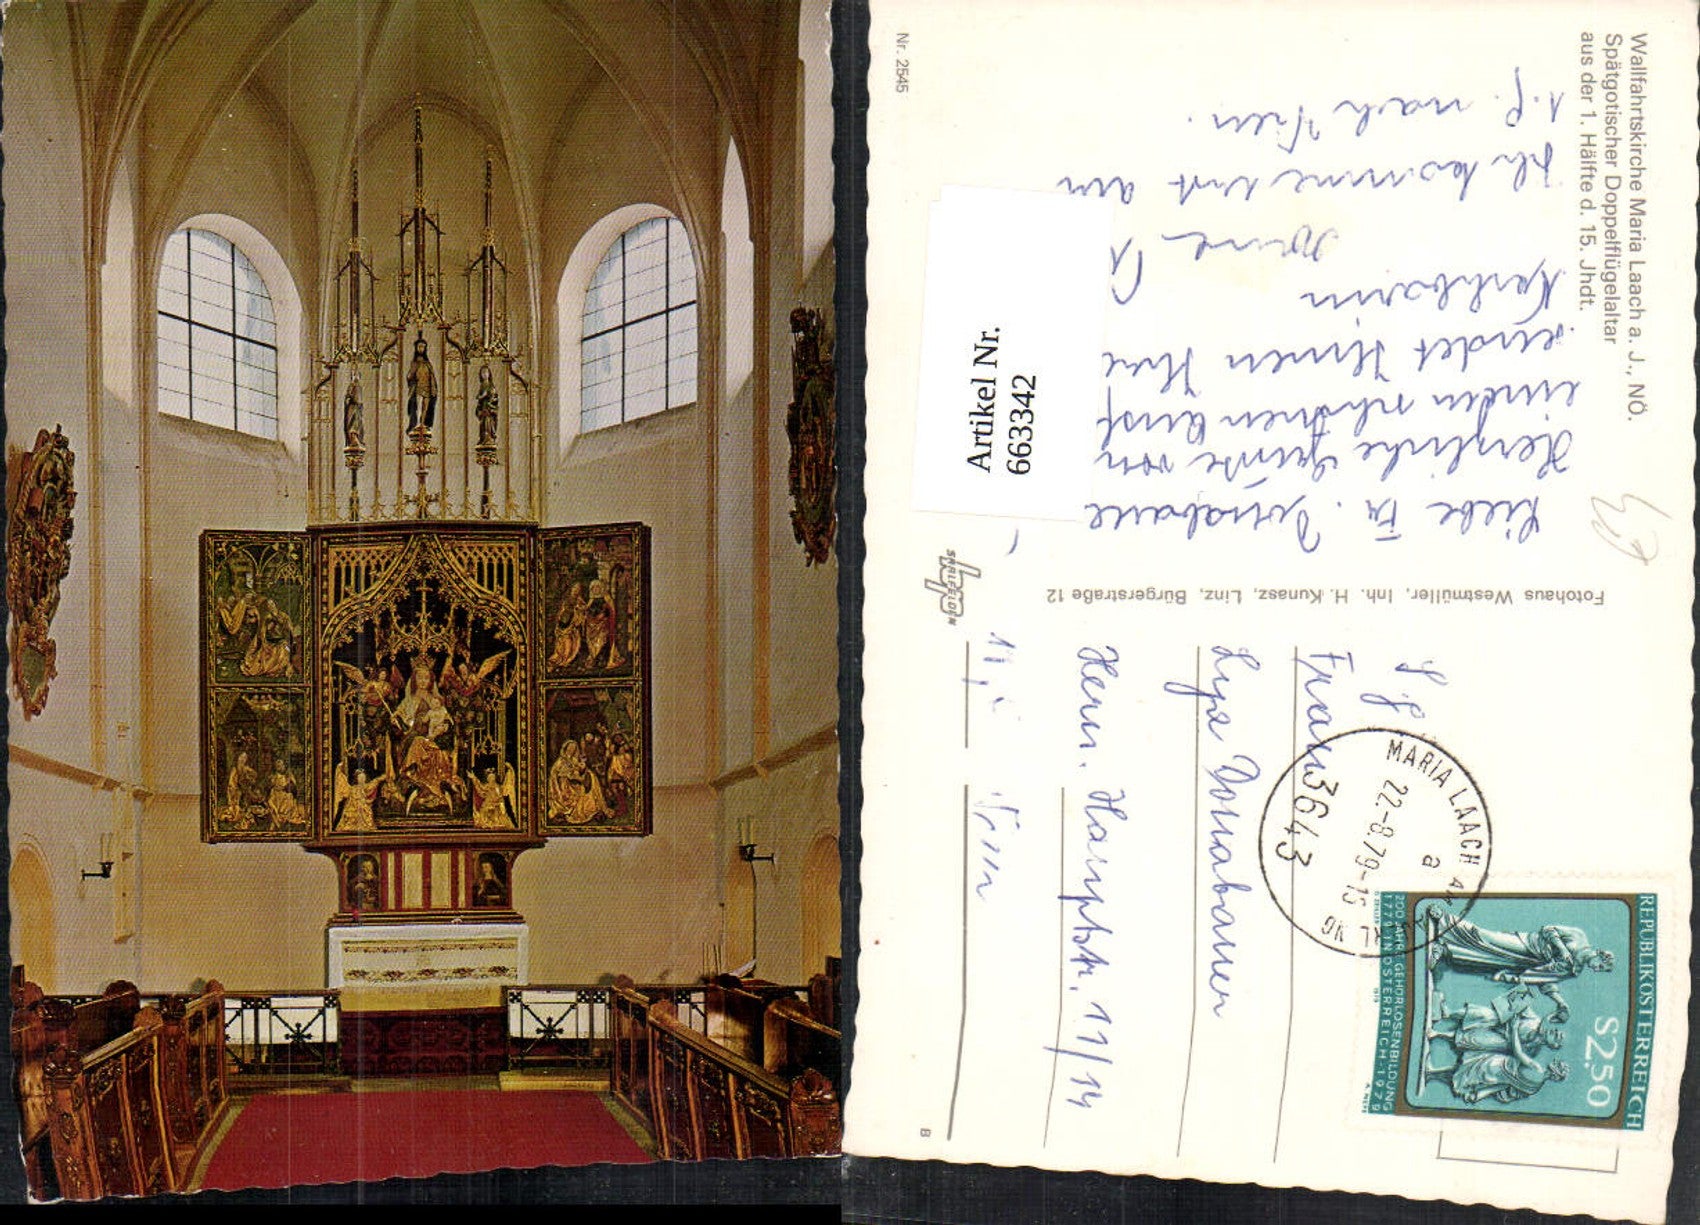 Wallfahrtskirche Maria Laach a. J., NÖ.
Spätgotischer Doppelflügelaltar
aus der 1. Hälfte d. 15. Jhdt.
Nr. 2545
Artikel Nr.
663342
Liebe Fr.
Herzliche Grüße von
einem schönen
sendet Ihnen Ihre
Ich komme erst am
1.9. nach Wien.
Fotohaus Westmüller, Inh. H. Kunasz, Linz, Bürgerstraße 12
SAALFELDEN
B
REPUBLIK ÖSTERREICH
S2.50
200 JAHRE GEHÖRLOSENBILDUNG
1779 IN ÖSTERREICH-1979
MARIA LAACH AM JAUERLING
22.-8.79-15
a
3643
Frau
Donabauer
Herm. Hauptstr. 11/14
Wien